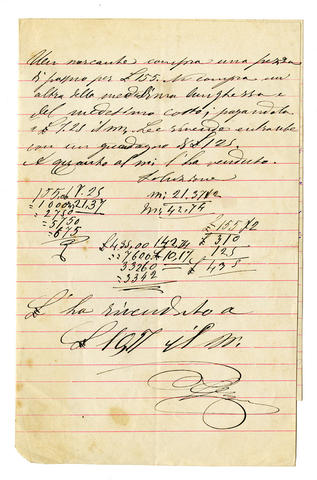 Un mercante compra una pezza
di panno per £ 155. Ne compra un
altra della medesima lunghezza e
del medesimo costo; pagandola
a £ 7.25 il m. Le rivende entrambe
con un guadagno di £ 125.
A quanto al m. l'ha venduto.
Soluzione
155,0 7.25 m. 21.37 X 2
= 1000 21,37 m. 42.74
= 2750 £ 155 X 2
= 5750 £ 435,00 42.74 £ 310
= 675 = 7600 10,17 125
33260 £ 435
= 3342
L'ha rivenduto a
£ 10,17 il m.